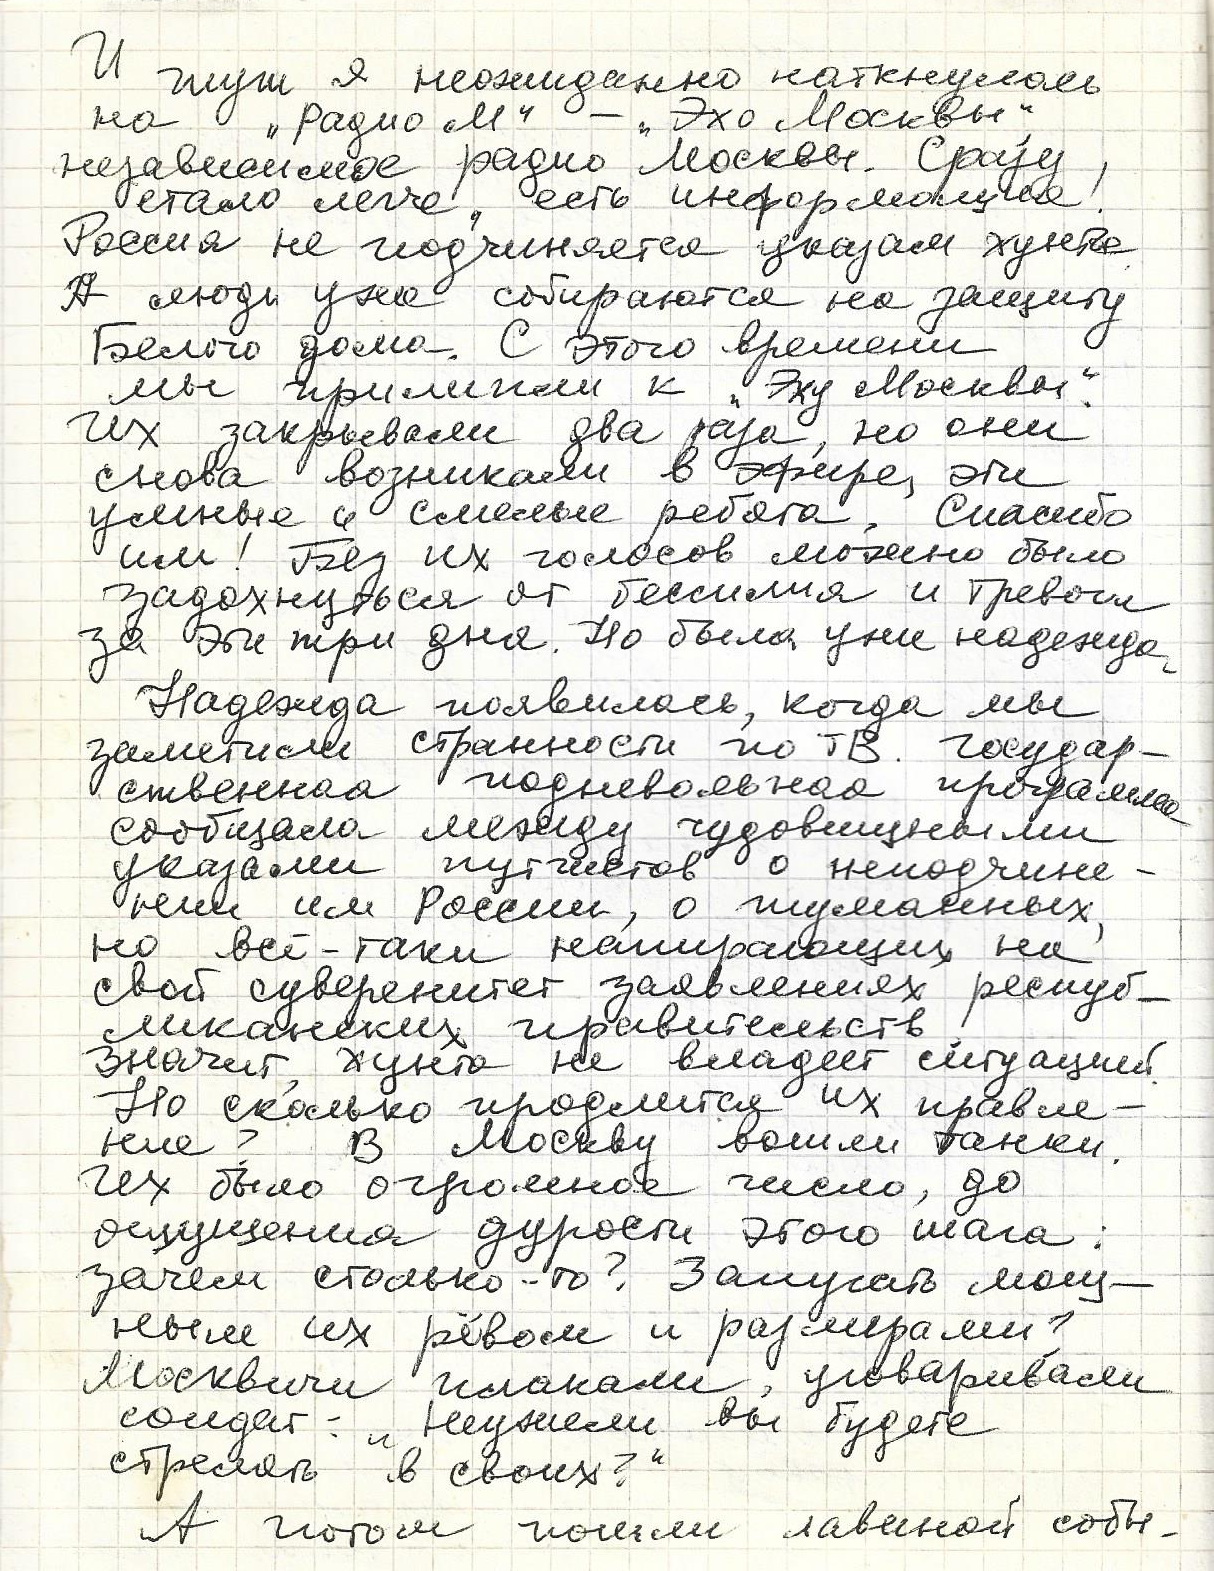 И тут я неожиданно наткнулась
на „Радио М" – „Эхо Москвы",
независимое радио Москвы. Сразу
стало легче, есть информация!
Россия не подчиняется указам хунты.
А люди уже собираются на защиту
Белого дома. С этого времени
мы прилипли к „Эху Москвы".
Их закрывали два раза, но они
снова возникали в эфире, эти
умные и смелые ребята. Спасибо
им! Без их голосов можно было
задохнуться от бессилия и тревоги
за эти три дня. Но была уже надежда.
Надежда появилась, когда мы
заметили странности по ТВ. Государ-
ственная подневольная программа
сообщала между чудовищными
указами путчистов о неподчине-
нии им России, о туманных,
но всё-таки напирающих на
свой суверенитет заявлениях респуб-
ликанских правительств
Значит, хунта не владеет ситуацией.
Но сколько продлится их правле-
ние? В Москву вошли танки.
Их было огромное число, до
ощущения дурости этого шага:
зачем столько-то? Запугать мощ-
ным их рёвом и размерами?
Москвичи плакали, уговаривали
солдат: „Неужели вы будете
стрелять в своих?"
А потом пошли лавиной собы-